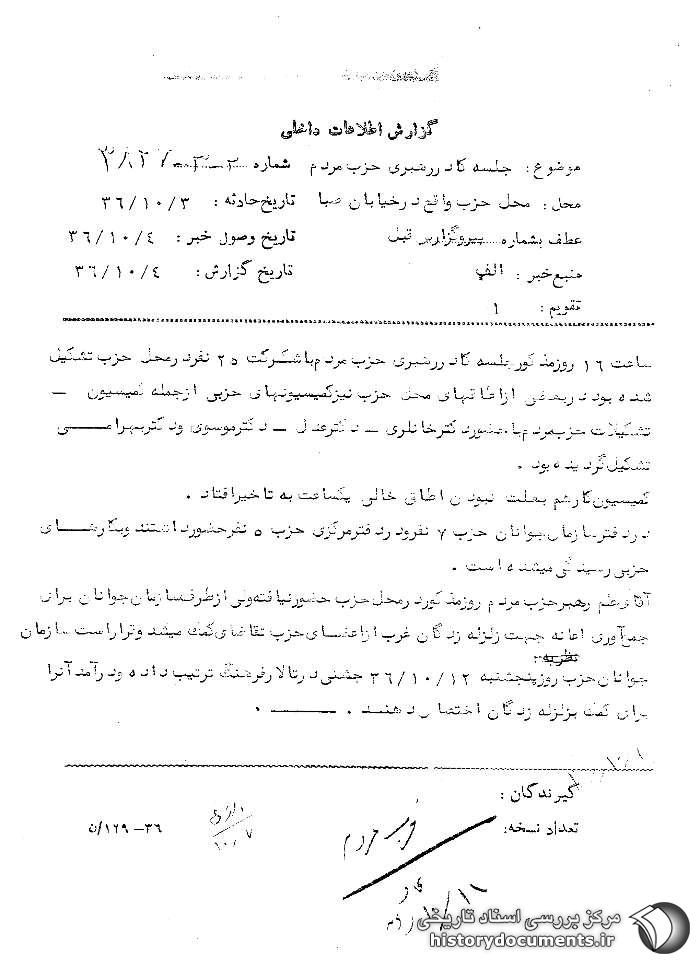 گزارش اطلاعات داخلی
موضوع : جلسه کادر رهبری حزب مردم شماره
محل : محل حزب واقع در خیابان صبا تاریخ حادثه : ۳۶/۱۰/۳
عطف بشماره پیرو گزارش قبل تاریخ وصول خبر : ۳۶/۱۰/۴
منبع خبر : الف تاریخ گزارش : ۳۶/۱۰/۴
تقویم : ۱
ساعت ۱۶ روز مذکور جلسه کادر رهبری حزب مردم با شرکت ۲۵ نفر در محل حزب تشکیل
شده بود در بعضی از اطاقهای محل حزب نیز کمیسیونهای حزبی از جمله کمیسیون ـ
تشکیلات حزب مردم با حضور دکتر خانلری ـ دکتر عدل ـ دکتر موسوی و دکتر بهرامی
تشکیل گردیده بود .
کمیسیون کارهم بعلت نبودن اطاق خالی یکساعت به تاخیر افتاد .
در دفتر سازمان جوانان حزب ۷ نفر و در دفتر مرکزی حزب ۵ نفر حضور داشتند و بکارهای
حزبی رسیدگی میشده است .
آقای علم رهبر حزب مردم روز مذکور در محل حزب حضور نیافته ولی از طرف سازمان جوانان برای
جمع آوری اعانه جهت زلزله زدگان غرب از اعضای حزب تقاضای کمک میشد و قرار است سازمان
نظریه
جوانان حزب روز پنجشنبه ۳۶/۱۰/۱۲ جشنی در تالار فرهنگ ترتیب داده و درآمد آنرا
برای کمک بزلزله زدگان اختصاص دهند .
گیرندگان :
تعداد نسخه: ۳۶-۱۲۹/ن
حزب مردم
۱۰/۷
مرکز بررسی اسناد تاریخی
historydocuments.ir